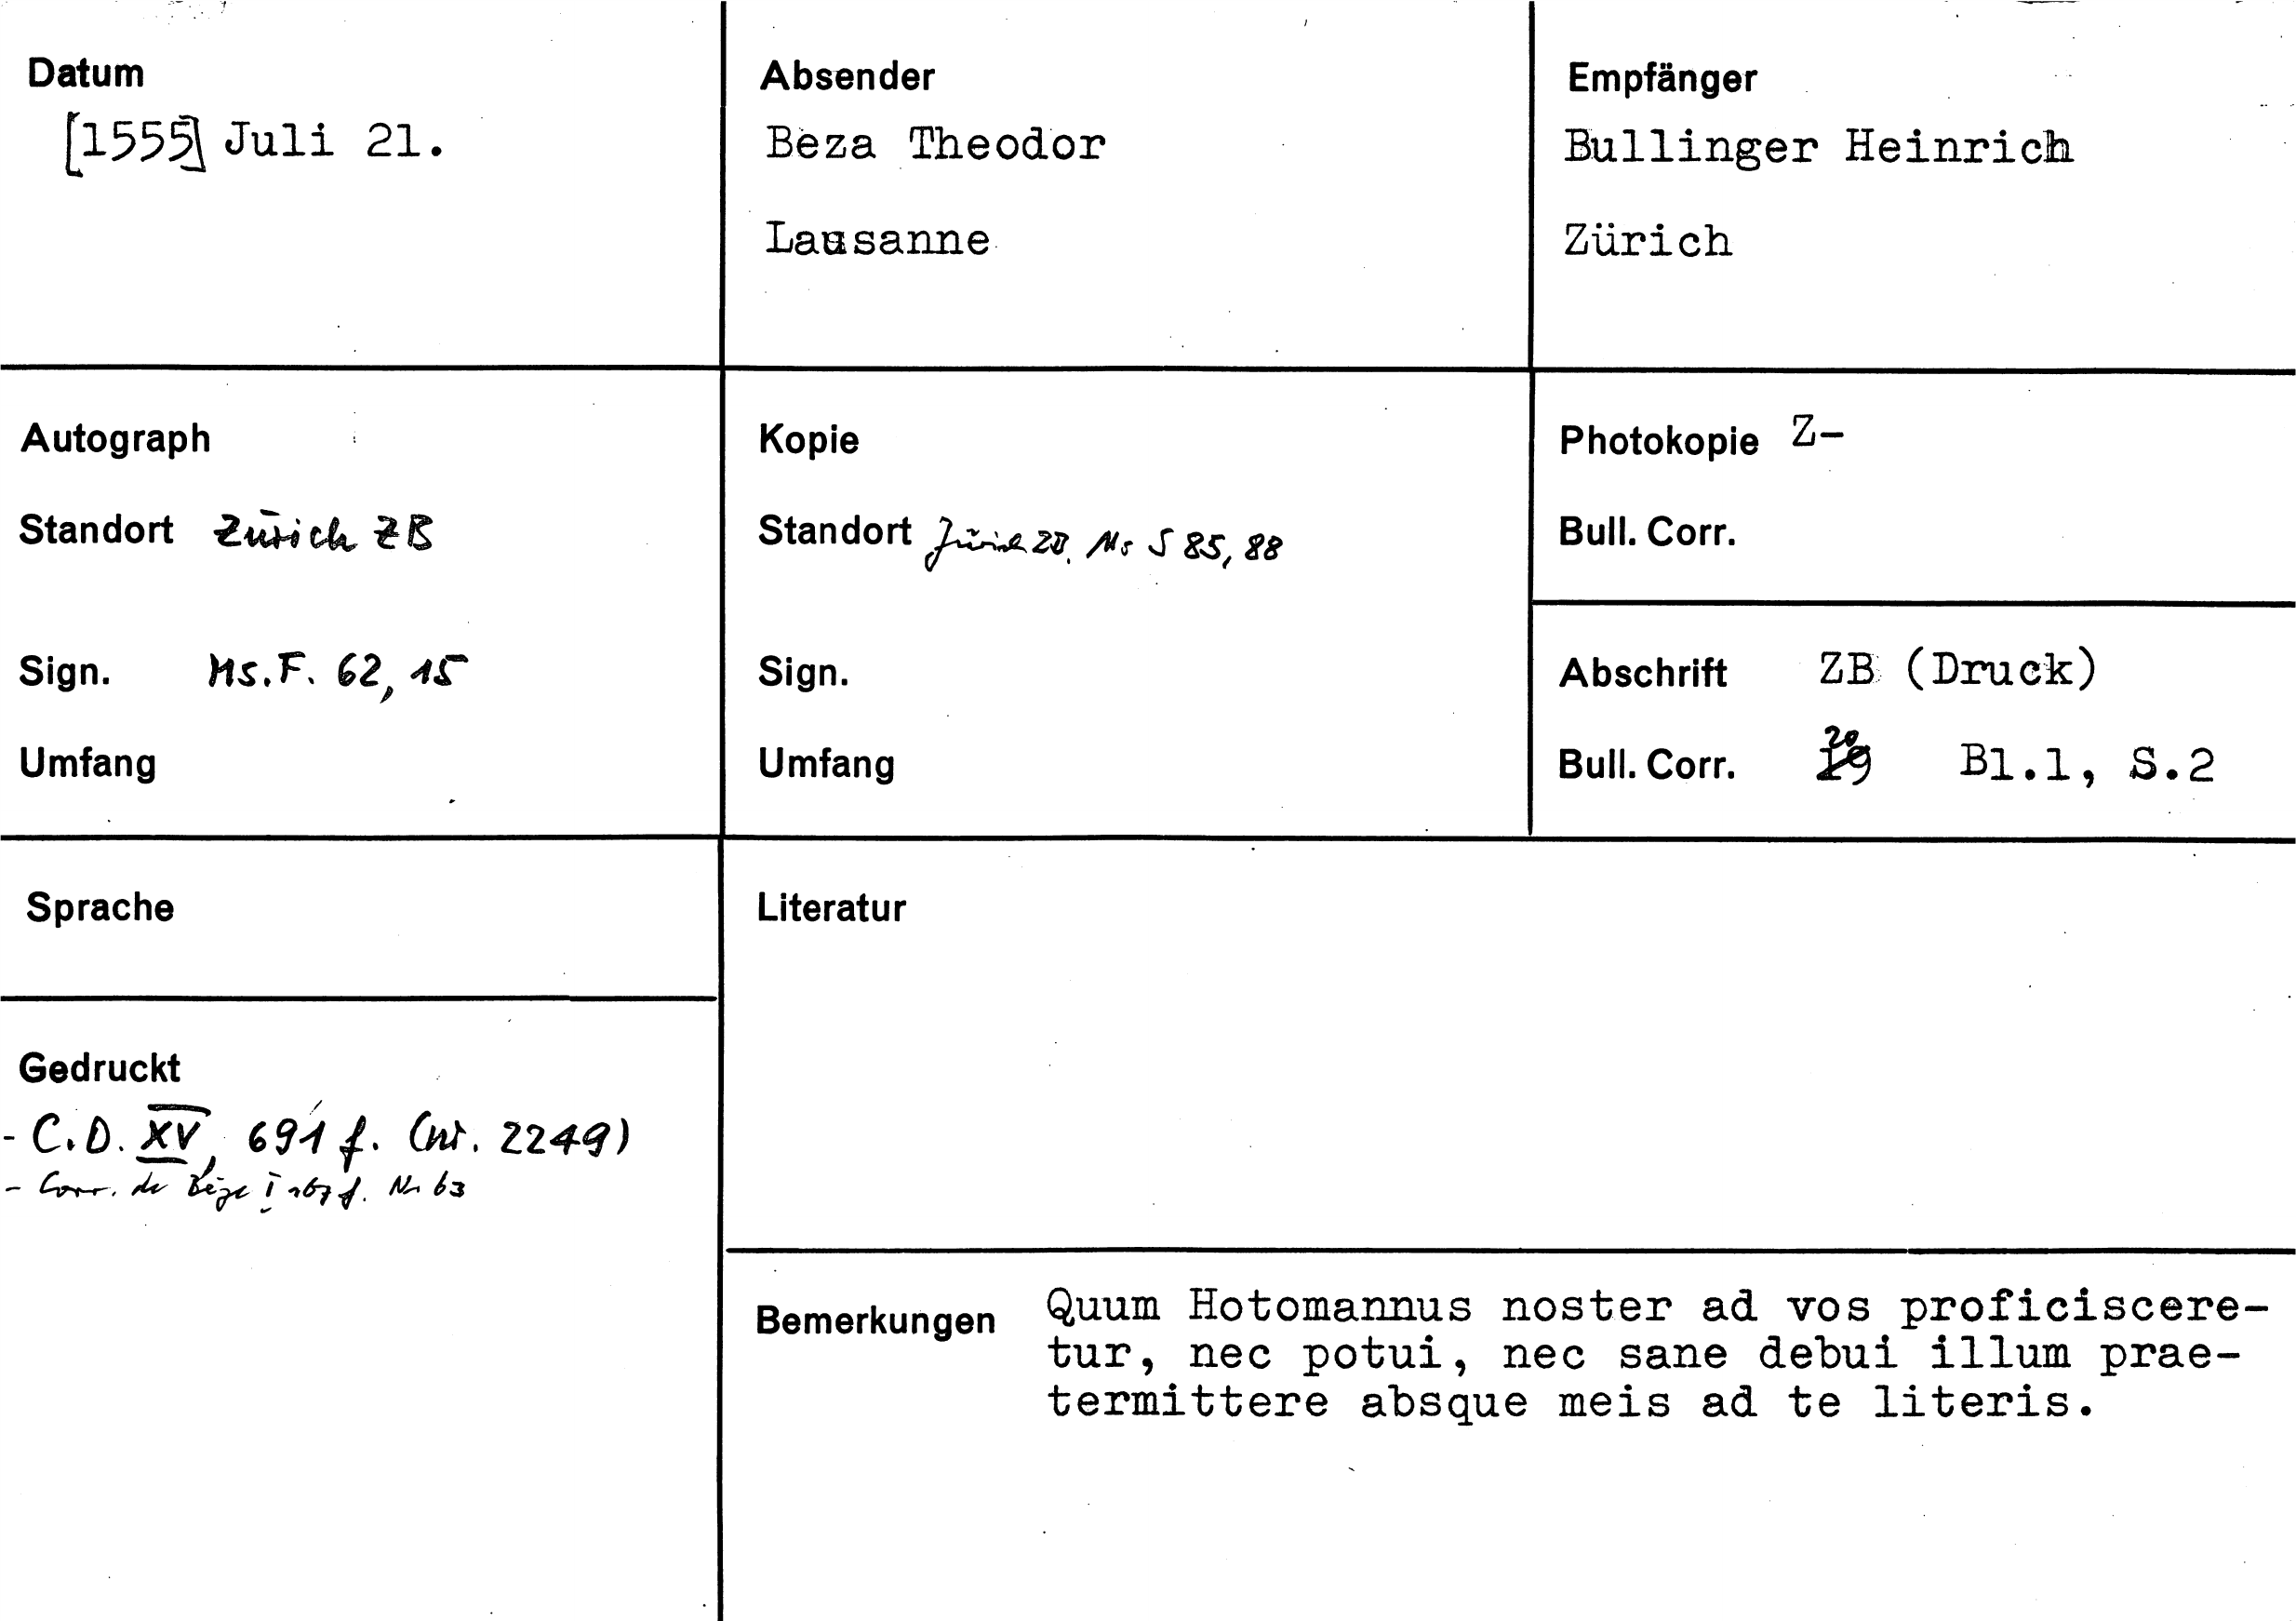 Datum
[1555] Juli 21.
Absender
Beza Theodor
Lausanne
Empfänger
Bullinger Heinrich
Zürich
Autograph
Standort Zürich ZB
Sign. Ms.F. 62, 15
Umfang
Kopie
Standort Zürich ZB. Ms S 85, 88
Sign.
Umfang
Photokopie Z-
Bull. Corr.
Abschrift ZB (Druck)
Bull. Corr. 20 Bl.1, S.2
Sprache
Gedruckt
- C.O. XV, 691 f. (nr. 2249)
- Corr. de Bèze I 167 f. Nr 63
Literatur
Bemerkungen Quum Hotomannus noster ad vos proficiscere-
tur, nec potui, nec sane debui illum prae-
termittere absque meis ad te literis.